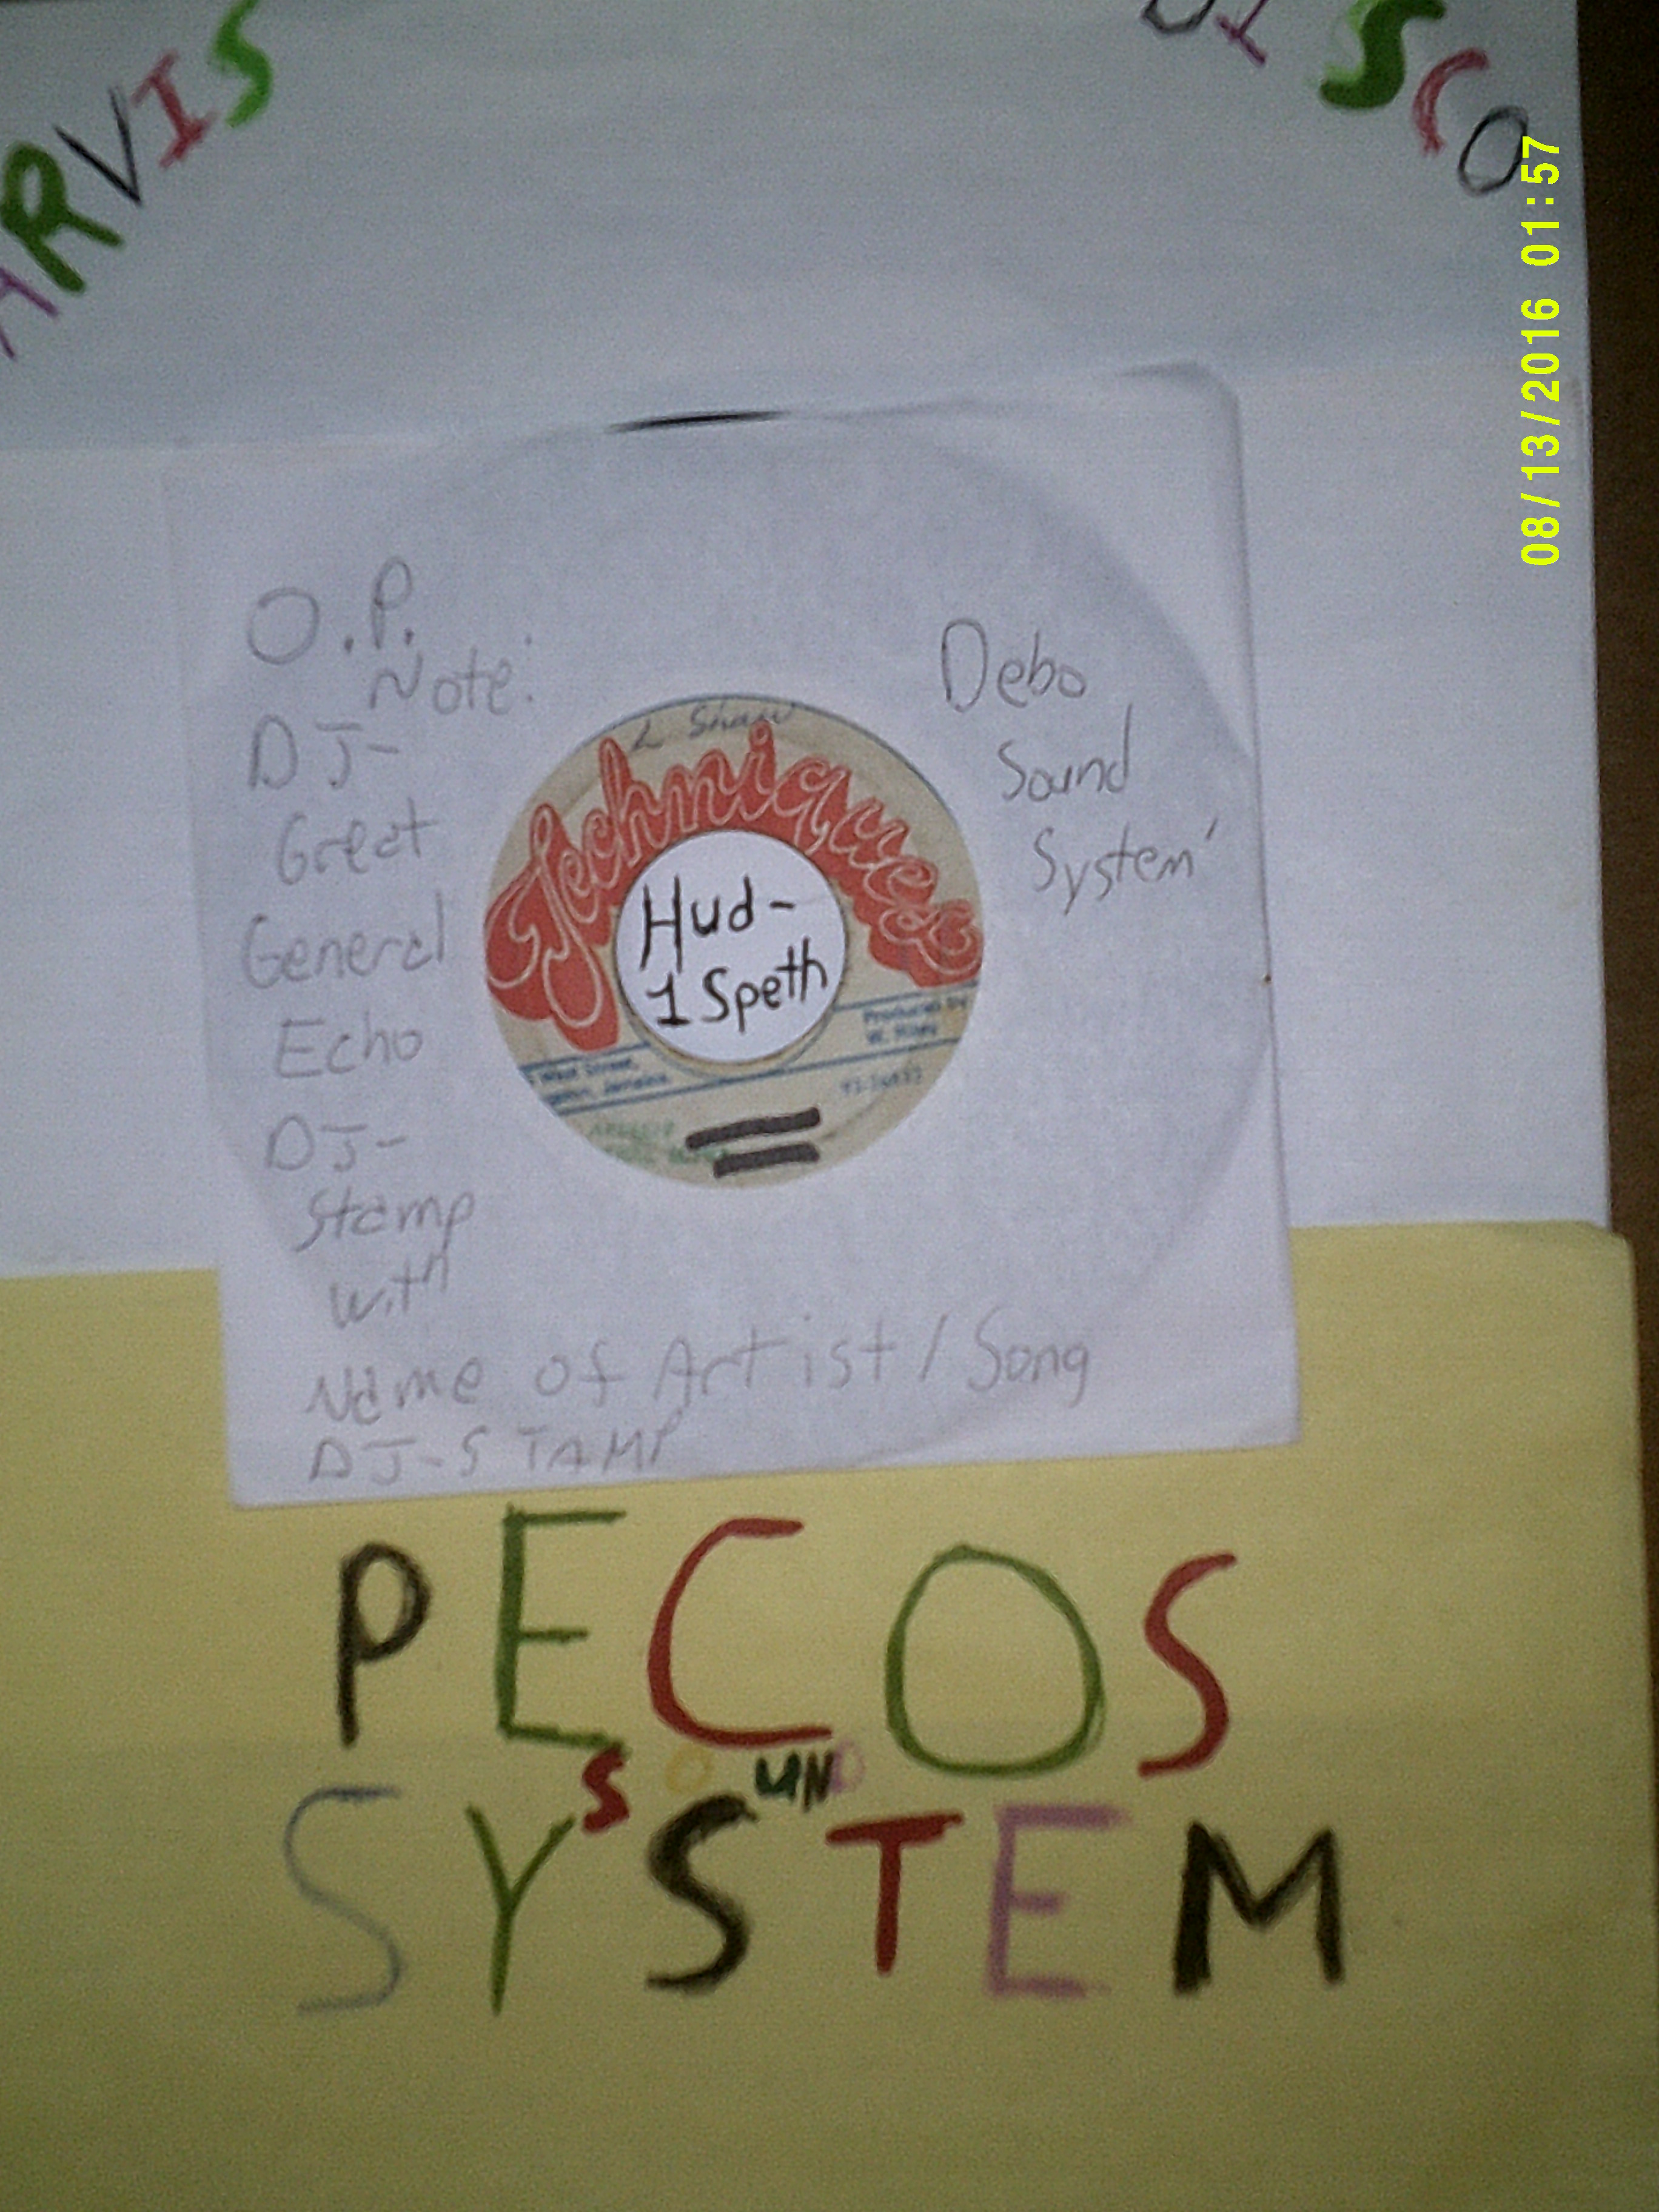 ARVIS
DISCO
08/13/2016 01:57
O.P.
Note:
DJ-
Great
General
Echo
DJ-
Stamp
with
Name of Artist / Song
DJ-STAMP
Debo
Sound
System'
L Shaw
Techniques
Hud-
1 Speth
Produced by
W. Riley
West Street,
Jamaica.
PECOS
SOUND
SYSTEM